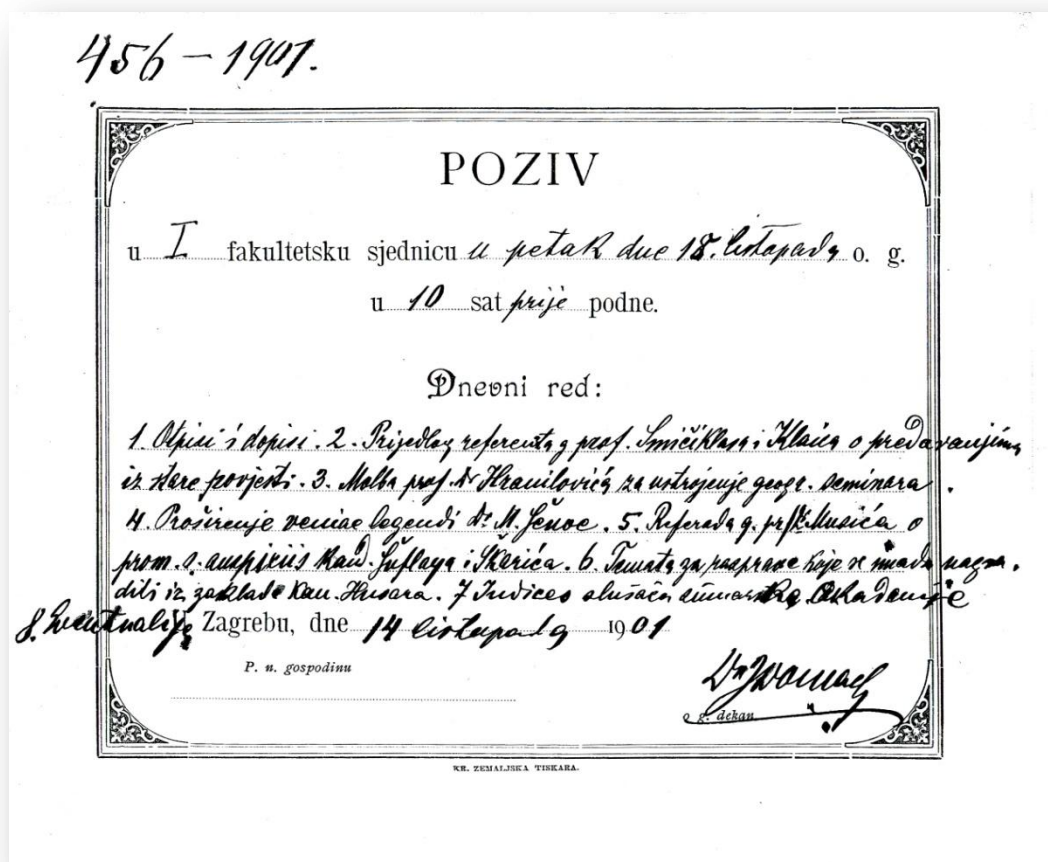 456 – 1901.
POZIV
u I fakultetsku sjednicu u petak dne 18. listopada o. g.
u 10 sat prije podne.
Dnevni red:
1. Otpisi i dopisi. 2. Prijedlog referenta g prof. Smičiklasa i Klaića o predavanjima
iz stare povjesti. 3. Molba prof. dr Hranilovića za ustrojenje geogr. seminara.
4. Proširenje veniae legendi dr. M. Šenoe. 5. Referada g. prof. Musića o
prom. s. auspiciis kand. Šuflaya i Skarića. 6. Temata za rasprave koje se imadu nagra-
diti iz zaklade kan. Husara. 7 Indices slušača šumarske akademije
8. Eventualije Zagrebu, dne 14 listopada 1901
P. n. gospodinu
o. g. dekan
KR. ZEMALJSKA TISKARA.